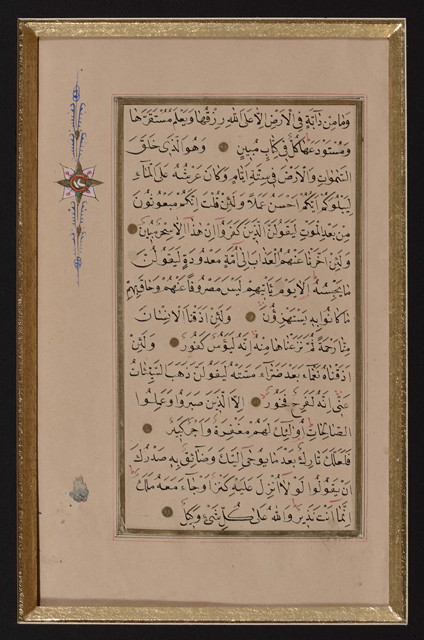 وَمَا مِنْ دَابَّةٍ فِي الْاَرْضِ اِلَّا عَلَى اللهِ رِزْقُهَا وَيَعْلَمُ مُسْتَقَرَّهَا
وَمُسْتَوْدَعَهَا كُلٌّ فِي كِتَابٍ مُبِينٍ وَهُوَ الَّذِي خَلَقَ
السَّمٰوَاتِ وَالْاَرْضَ فِي سِتَّةِ اَيَّامٍ وَكَانَ عَرْشُهُ عَلَى الْمَاءِ
لِيَبْلُوَكُمْ اَيُّكُمْ اَحْسَنُ عَمَلًا وَلَئِنْ قُلْتَ اِنَّكُمْ مَبْعُوثُونَ
مِنْ بَعْدِ الْمَوْتِ لَيَقُولَنَّ الَّذِينَ كَفَرُوا اِنْ هٰذَا اِلَّا سِحْرٌ مُبِينٌ
وَلَئِنْ اَخَّرْنَا عَنْهُمُ الْعَذَابَ اِلٰى اُمَّةٍ مَعْدُودَةٍ لَيَقُولُنَّ
مَا يَحْبِسُهُ اَلَا يَوْمَ يَأْتِيهِمْ لَيْسَ مَصْرُوفًا عَنْهُمْ وَحَاقَ بِهِمْ
مَا كَانُوا بِهِ يَسْتَهْزِؤُنَ وَلَئِنْ اَذَقْنَا الْاِنْسَانَ
مِنَّا رَحْمَةً ثُمَّ نَزَعْنَاهَا مِنْهُ اِنَّهُ لَيَؤُسٌ كَفُورٌ وَلَئِنْ
اَذَقْنَاهُ نَعْمَاءَ بَعْدَ ضَرَّاءَ مَسَّتْهُ لَيَقُولَنَّ ذَهَبَ السَّيِّئَاتُ
عَنِّي اِنَّهُ لَفَرِحٌ فَخُورٌ اِلَّا الَّذِينَ صَبَرُوا وَعَمِلُوا
الصَّالِحَاتِ اُولٰئِكَ لَهُمْ مَغْفِرَةٌ وَاَجْرٌ كَبِيرٌ
فَلَعَلَّكَ تَارِكٌ بَعْضَ مَا يُوحٰى اِلَيْكَ وَضَائِقٌ بِهِ صَدْرُكَ
اَنْ يَقُولُوا لَوْلَا اُنْزِلَ عَلَيْهِ كَنْزٌ اَوْ جَاءَ مَعَهُ مَلَكٌ
اِنَّمَا اَنْتَ نَذِيرٌ وَاللهُ عَلٰى كُلِّ شَيْءٍ وَكِيلٌ